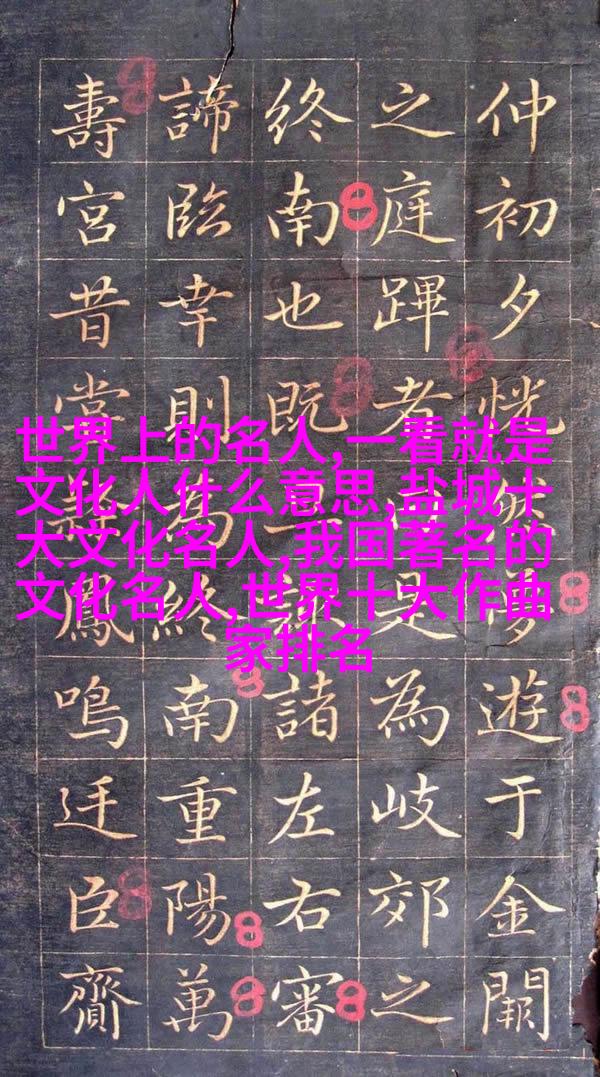 仲初夕恍然遊于金闕
之庭蹕者是為岐郊之
終南也既諸左右審
諦臨幸則為終南重陽萬
壽宮昔鳳鳴廷臣齎
世界上的名人,一看就是
文化人什么意思,盐城十
大文化名人,我国著名的
文化名人,世界十大作曲
家排名